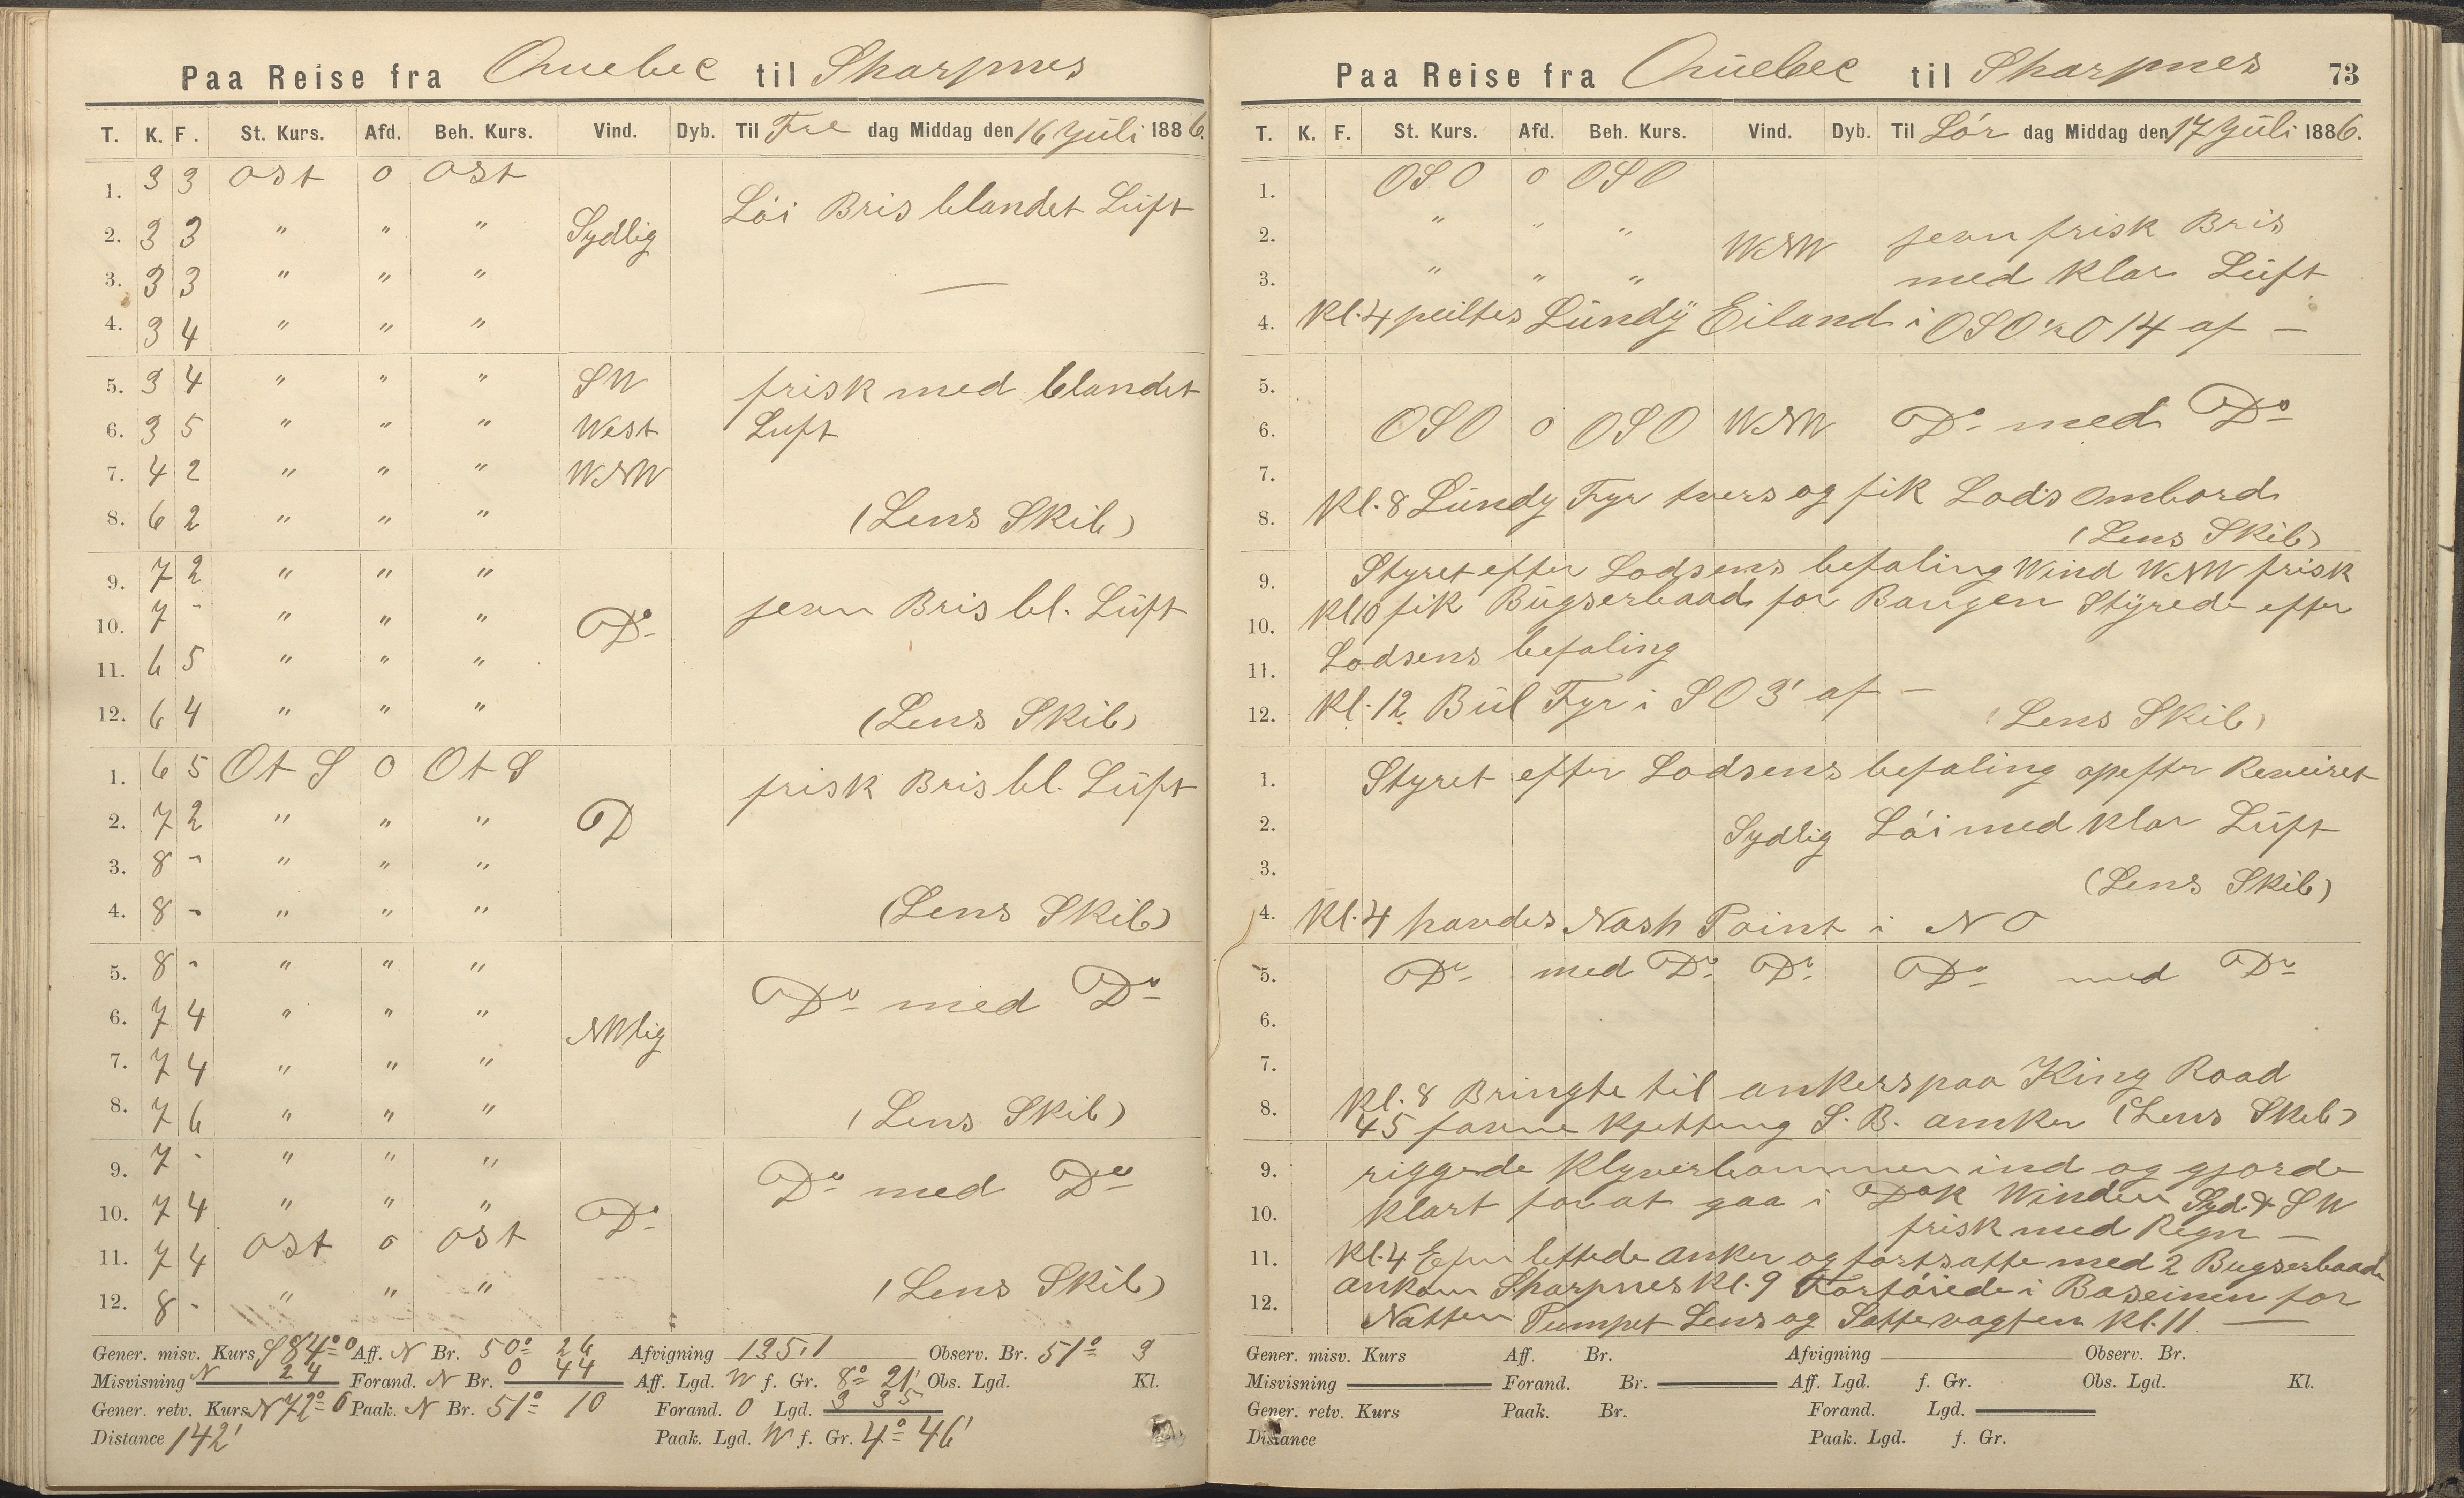 Paa Reise fra Quebec til Sharpnes
T. K. F. St. Kurs. Afd. Beh. Kurs. Vind. Dyb. Til Fre dag Middag den 16 Juli 1886.
1. 3 3 ost o ost
Löi Bris blandet Luft
2. 3 3 " " " Sydlig
3. 3 3 " " " —
4. 3 4 " " "
5. 3 4 " " " SW frisk med blandet
6. 3 5 " " " West Luft
7. 4 2 " " " WNW
8. 6 2 " " " (Lens Skib)
9. 7 2 " " "
10. 7 - " " " Do jevn Bris bl. Luft
11. 6 5 " " "
12. 6 4 " " " (Lens Skib)
1. 6 5 Ot S o Ot S frisk Bris bl. Luft
2. 7 2 " " " D
3. 8 - " " "
4. 8 - " " " (Lens Skib)
5. 8 - " " "
Do med Do
6. 7 4 " " " NWlig
7. 7 4 " " "
8. 7 6 " " " (Lens Skib)
9. 7 - " " " Do med Do
10. 7 4 " " " Do
11. 7 4 ost o ost
12. 8 - " " " (Lens Skib)
Gener. misv. Kurs S 84° O Aff. N Br. 50° 26 Afvigning 135,1 Observ. Br. 51° 9
Misvisning N 24 Forand. N Br. 0 44 Aff. Lgd. W f. Gr. 8° 21' Obs. Lgd. Kl.
Gener. retv. Kurs N 72° O Paak. N Br. 51° 10 Forand. O Lgd. 3 35
Distance 142' Paak. Lgd. W f. Gr. 4° 46'
Paa Reise fra Quebec til Sharpnes 73
T. K. F. St. Kurs. Afd. Beh. Kurs. Vind. Dyb. Til Lör dag Middag den 17 Juli 1886.
1. OSO o OSO
2. " " " WNW jevn frisk Bris
3. " " " med klar Luft
4. Kl. 4 peiltes Lundy Eiland i OSO 1/2 O 14 af —
5.
6. OSO o OSO WNW Do med Do
7.
8. Kl. 8 Lundy Fyr tvers og fik Lods ombord
(Lens Skib)
9. Styret efter Lodsens befaling Wind WNW frisk
10. Kl 10 fik Bugserbaad for Baugen Styrede efter
11. Lodsens befaling
12. Kl. 12 Bul Fyr i SO 3' af —
(Lens Skib)
1. Styret efter Lodsens befaling opefter Reveiret
2. Sydlig Löi med klar Luft
3. (Lens Skib)
4. Kl. 4 havdes Nash Point i NO
5. Do med Do Do Do med Do
6.
7.
8. Kl. 8 Bringte til ankers paa King Road
45 favne Kjetting S. B. anker (Lens Skib)
9. riggede Klyverbommen ind og gjorde
10. klart for at gaa i Dok Winden Syd & SW
frisk med Regn —
11. Kl. 4 Efm lettede anker og fortsatte med 2 Bugserbaade
12. ankom Sharpnes Kl. 9 Fortöiede i Baseinen for
Natten Pumpet Lens og Satte vagten Kl. 11 —
Gener. misv. Kurs Aff. Br. Afvigning Observ. Br.
Misvisning Forand. Br. Aff. Lgd. f. Gr. Obs. Lgd. Kl.
Gener. retv. Kurs Paak. Br. Forand. Lgd.
Distance Paak. Lgd. f. Gr.